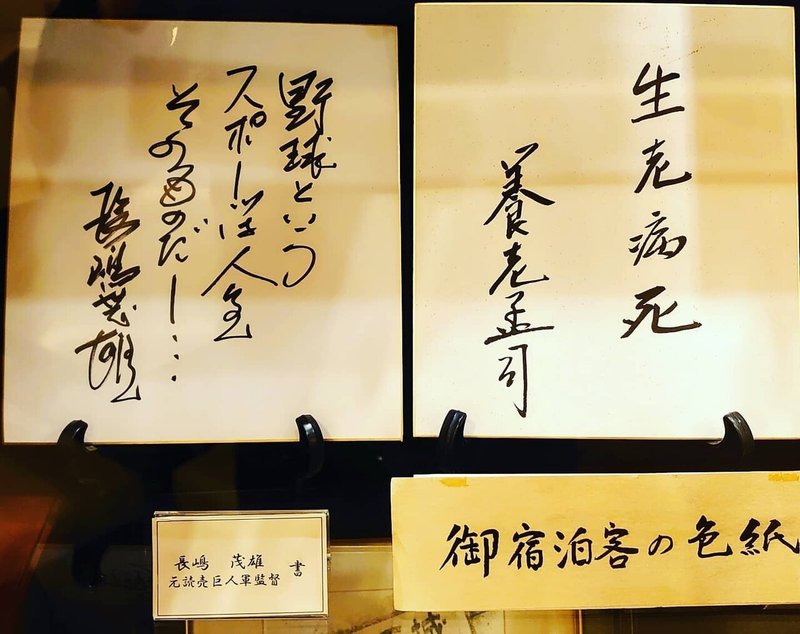 生老病死
養老孟司
野球という
スポーツは人生
そのものだー…
長嶋茂雄
長嶋 茂雄
元読売巨人軍監督 書
御宿泊客の色紙